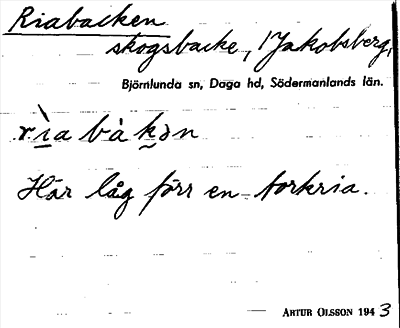 Riabacken
skogsbacke, Jakobsberg,
Björnlunda sn, Daga hd, Södermanlands län.
rìa bàkən
Här låg förr en torkria.
ARTUR OLSSON 1943